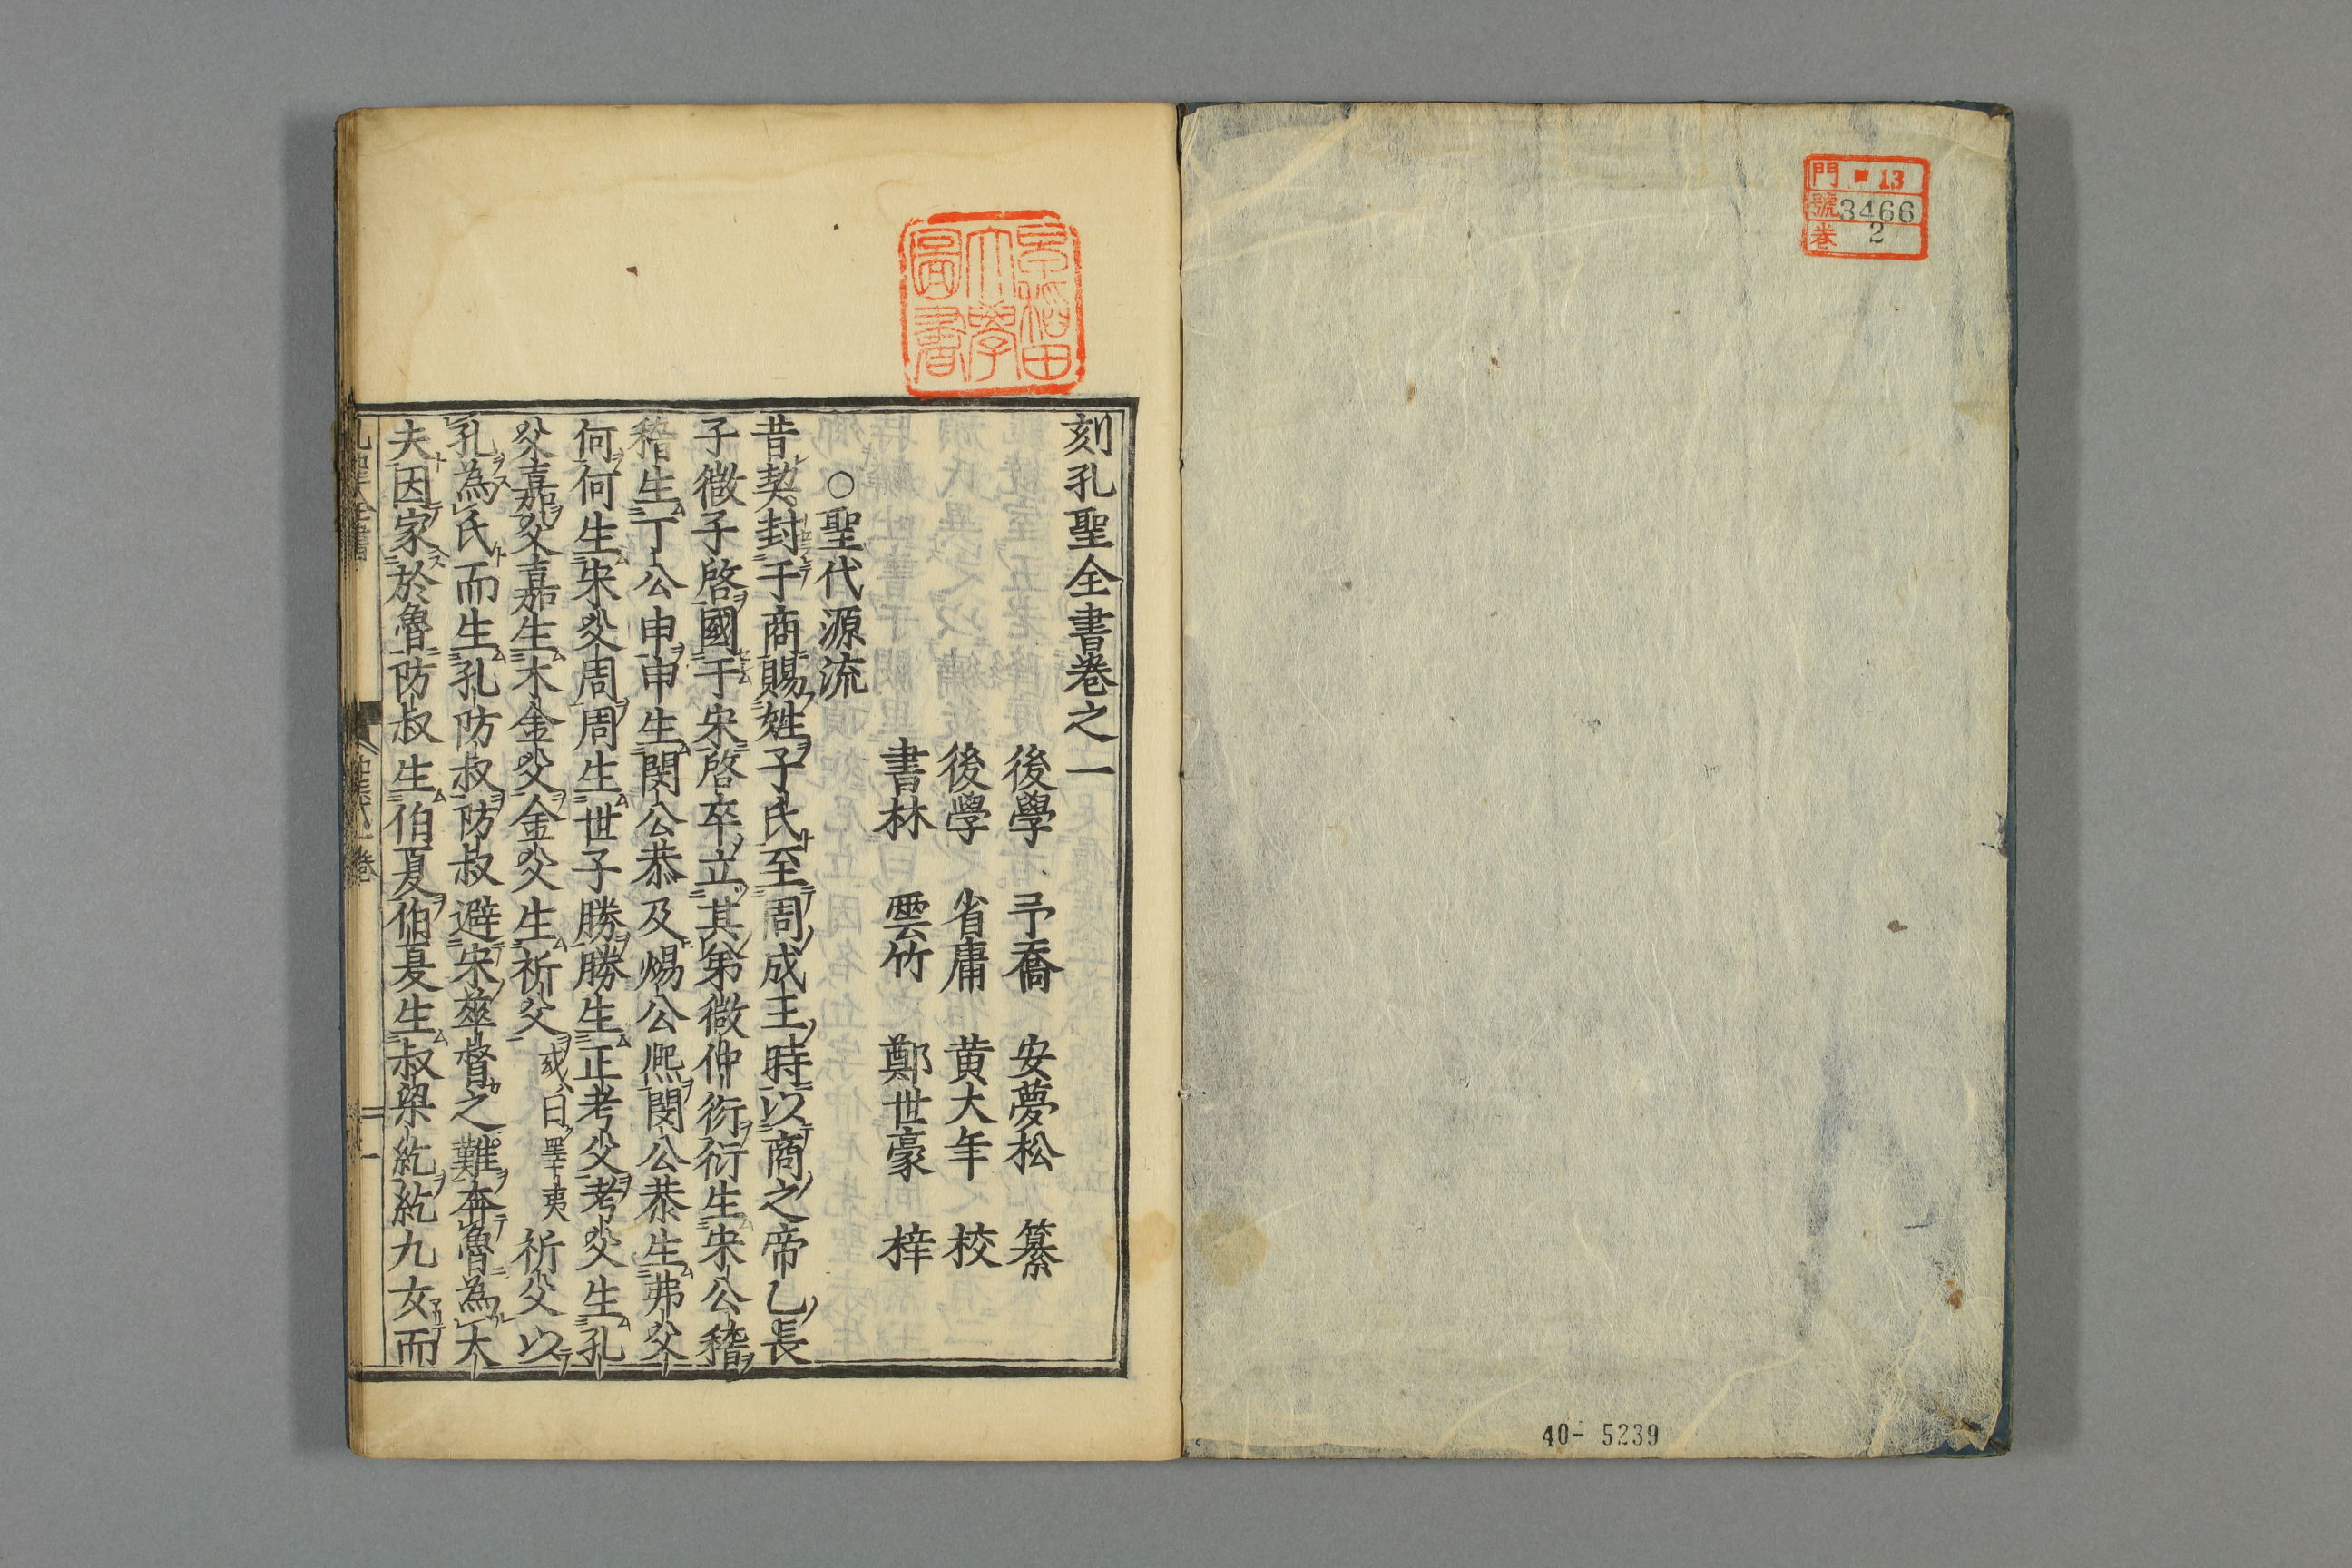 門 13
號 3466
卷 2
40- 5239
早稻田
大學
圖書
刻孔聖全書卷之一
後學 予喬 安夢松 纂
後學 省庸 黃大年 校
書林 雲竹 鄭世豪 梓
○聖代源流
昔契封于商賜姓子氏至周成王時以商之帝乙長
子微子啓國于宋啓卒立其弟微仲衍衍生宋公稽
稽生丁公申申生閔公恭及煬公熈閔公恭生弗父
何何生宋父周周生世子勝勝生正考父考父生孔
父嘉父嘉生木金父金父生祈父或曰睪夷祈父以
孔為氏而生孔防叔防叔避宋華督之難奔魯為大
夫因家於魯防叔生伯夏伯夏生叔梁紇紇九女而
孔聖全書